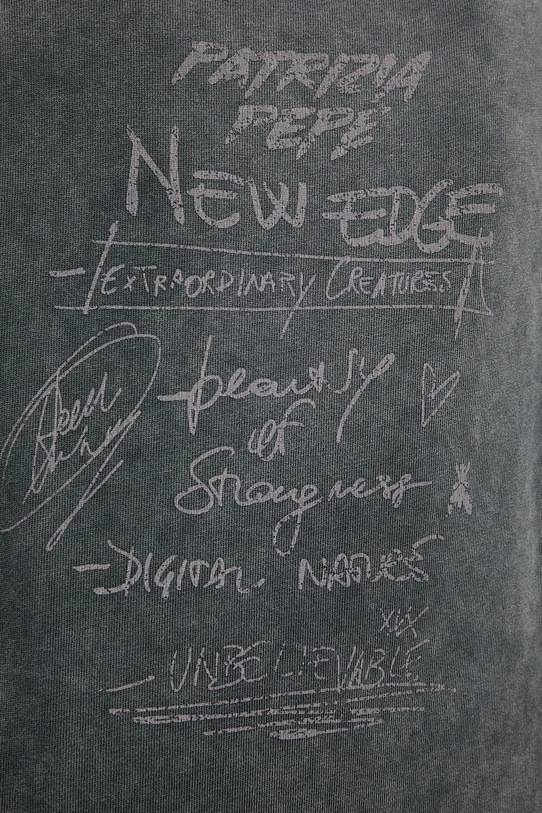 PATRIZIA
PEPE
NEW EDGE
-EXTRAORDINARY CREATURES
-beautsy
of
Strongness
-DIGITAL NATURE
XXX
- UNBELIEVABLE